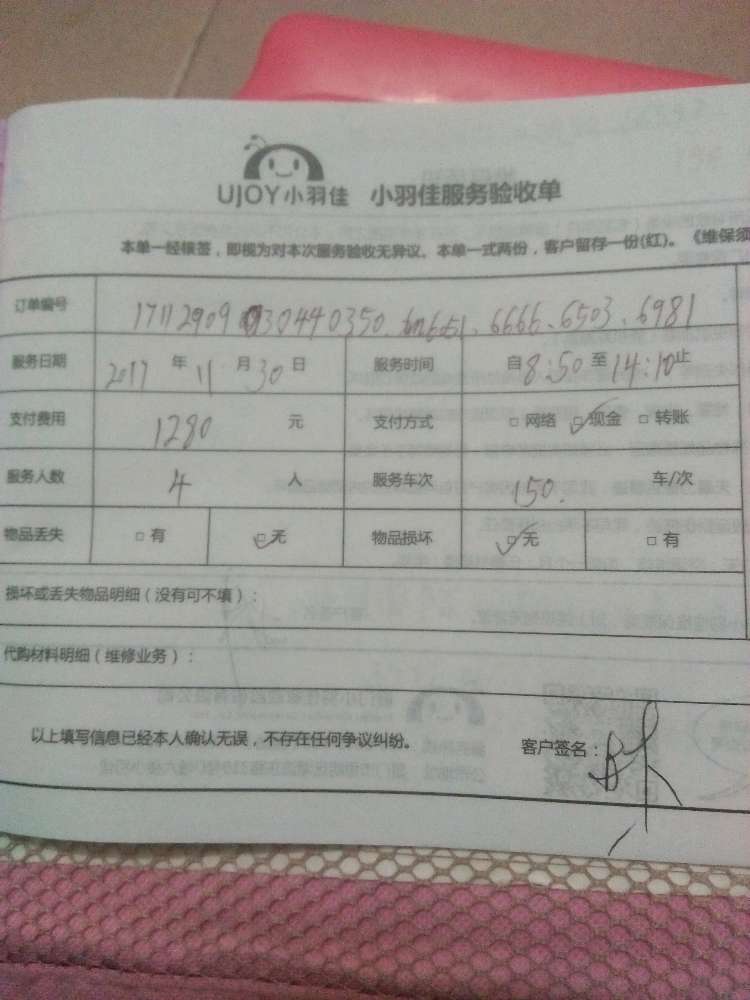 UJOY小羽佳 小羽佳服务验收单
本单一经核签，即视为对本次服务验收无异议。本单一式两份，客户留存一份(红)。《维保须
订单编号 6666、6503、6981
服务日期 2017 年 11 月 30 日 服务时间 自 8:50 至 14:10 止
支付费用 1280 元 支付方式 □ 网络 ☑ 现金 □ 转账
服务人数 4 人 服务车次 150. 车/次
物品丢失 □ 有 ☑ 无 物品损坏 ☑ 无 □ 有
损坏或丢失物品明细（没有可不填）：
代购材料明细（维修业务）：
以上填写信息已经本人确认无误，不存在任何争议纠纷。 客户签名：